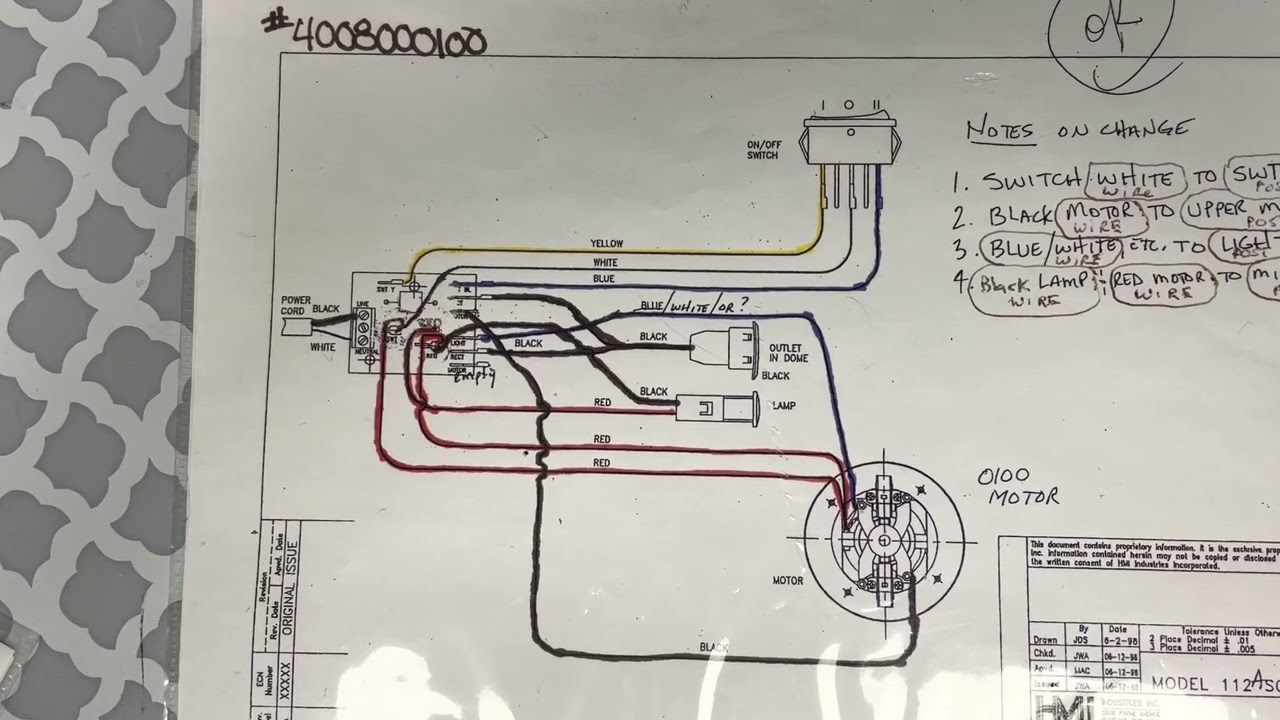 #4008000100
OK
I O II
ON/OFF
SWITCH
NOTES ON CHANGE
1. SWITCH WHITE TO SWT
WIRE POS
2. BLACK MOTOR TO UPPER M
WIRE POS
3. BLUE/WHITE, ETC. TO LIGH
WIRE POST
4. Black LAMP RED MOTOR TO M
WIRE WIRE
YELLOW
WHITE
BLUE
BLUE/WHITE/OR?
POWER
CORD
BLACK
WHITE
LINE
NEUTRAL
SWT Y
LIGHT
RECT
MOTOR
Empty
RED
BLACK
BLACK
OUTLET
IN DOME
BLACK
BLACK
LAMP
RED
RED
RED
0100
MOTOR
MOTOR
BLACK
This document contains proprietary information. It is the exclusive prop
Inc. Information contained herein may not be copied or disclosed
the written consent of HMI Industries Incorporated.
By Date
Drawn JDS 6-2-98
Chkd. JWA 06-12-98
Apvd. MAC 06-12-98
Issued JWA 06-12-98
Tolerance Unless Otherw
2 Place Decimal ± .01
3 Place Decimal ± .005
MODEL 112ASC
HMI INDUSTRIES INC.
Revision
Rev. Date Apvd. Date
ORIGINAL ISSUE
ECN
Number
XXXXX